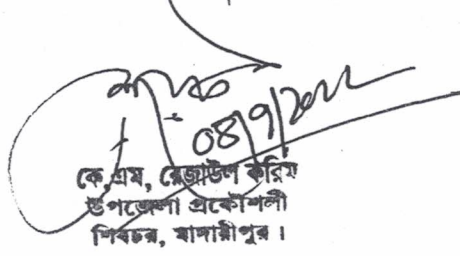 08/9/2022
কে, এম, রেজাউল করিম
উপজেলা প্রকৌশলী
শিবচর, মাদারীপুর।